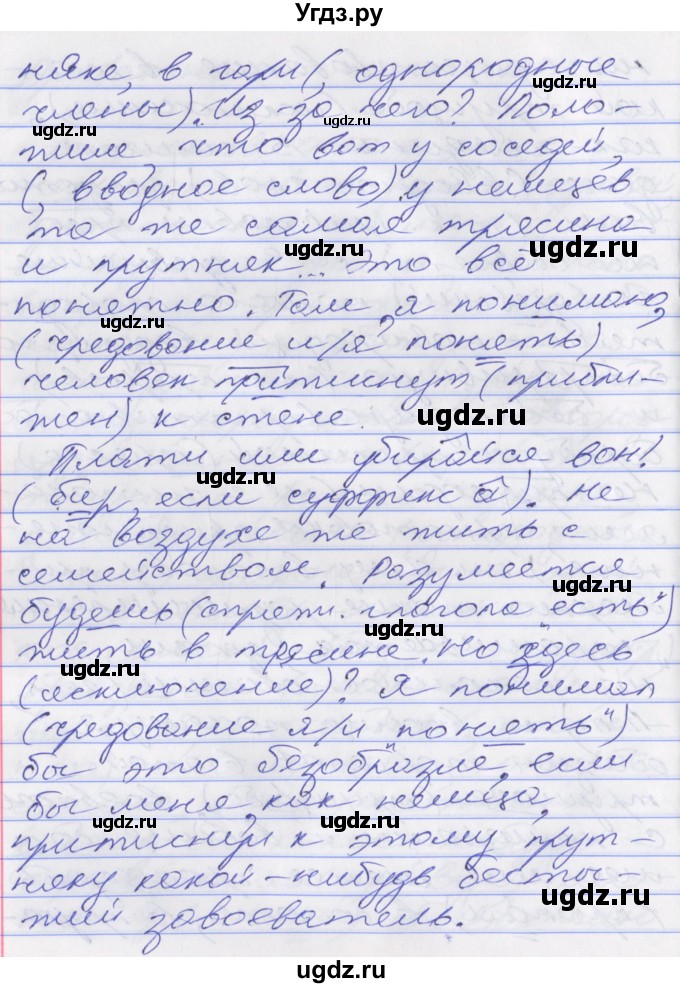 Угдз.ру
няке, в гари (, однородные
ugdz.ru
члены). Из-за чего? Поло-
ugdz.ru ugdz.ru
жим, что вот у соседей,
ugdz.ru
(, вводное слово) у немцев
ugdz.ru
та же самая трясина
ugdz.ru ugdz.ru
и прутняк... Это всё
понятно. Там, я понимаю,
ugdz.ru
(чредование и/я понять)
ugdz.ru
человек притиснут (прибли-
жен) к стене.
ugdz.ru
Плати или убирайся вон!
ugdz.ru
(бир, если суффикс а). Не
на воздухе же жить с
семейством. Разумеется
ugdz.ru
будешь (спряж. глагола есть")
ugdz.ru
жить в трясине. Но здесь
ugdz.ru
(исключение)? Я понимал
(чредование я/и понять")
бы это безобразие, если
бы меня, как немца,
ugdz.ru ugdz.ru
притиснул к этому прут-
няку какой-нибудь бесты-
ugdz.ru
жий завоеватель.
ugdz.ru